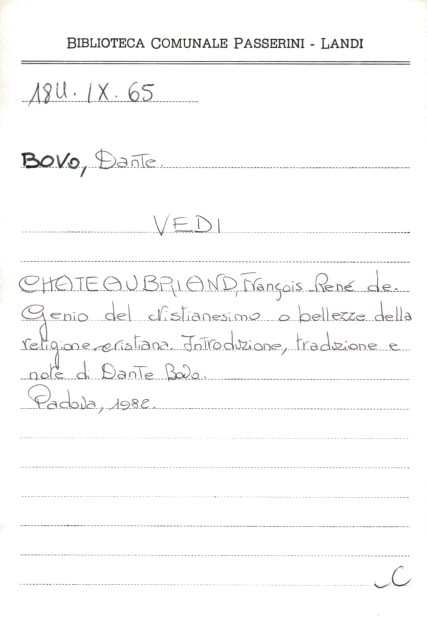 BIBLIOTECA COMUNALE PASSERINI - LANDI
18U. IX. 65
BOVO, Dante.
VEDI
CHATEAUBRIAND, François René de.
Genio del cristianesimo o bellezze della
religione cristiana. Introduzione, traduzione e
note di Dante Bovo.
Padova, 1982.
C